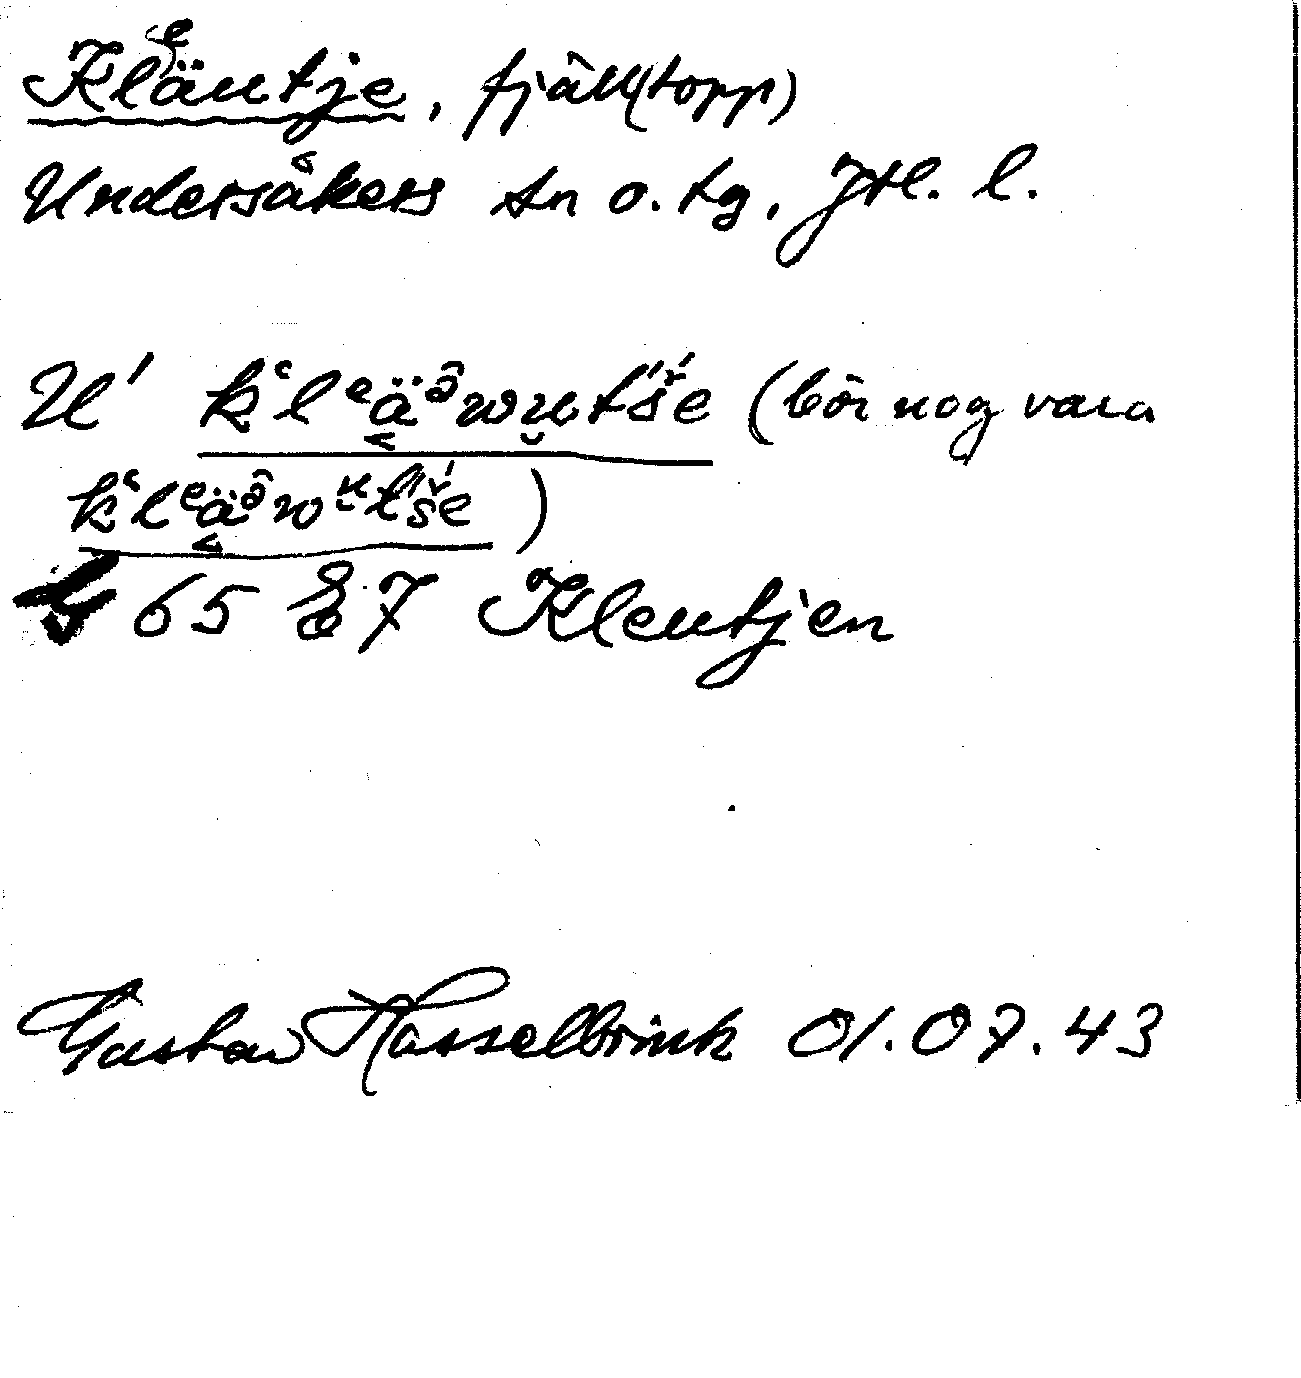 Kleäutje, fjäll(topp)
Undersåkers sn o. tg, Jtl. l.
U' k‘lᵉä̬ᵒ̂wu̮t́š́e (bör nog vara
k‘lᵉä̬ᵒ̂wᵘ̮t́š́e)
G 65 E7 Kleutjen
Gustav Hasselbrink 01.07.43